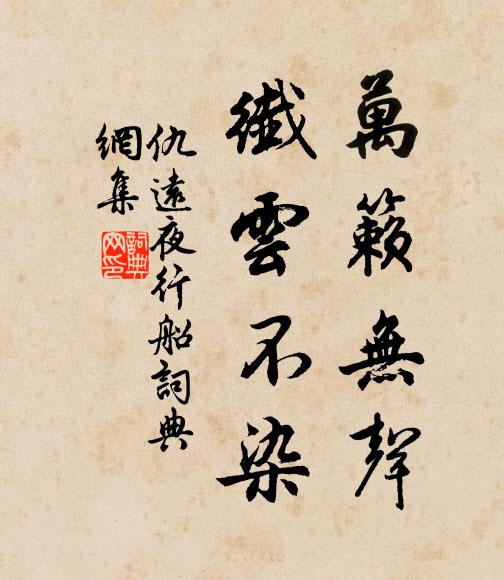 萬籟無聲
纖雲不染
仇遠夜行船詞典
網集
詞典
网印